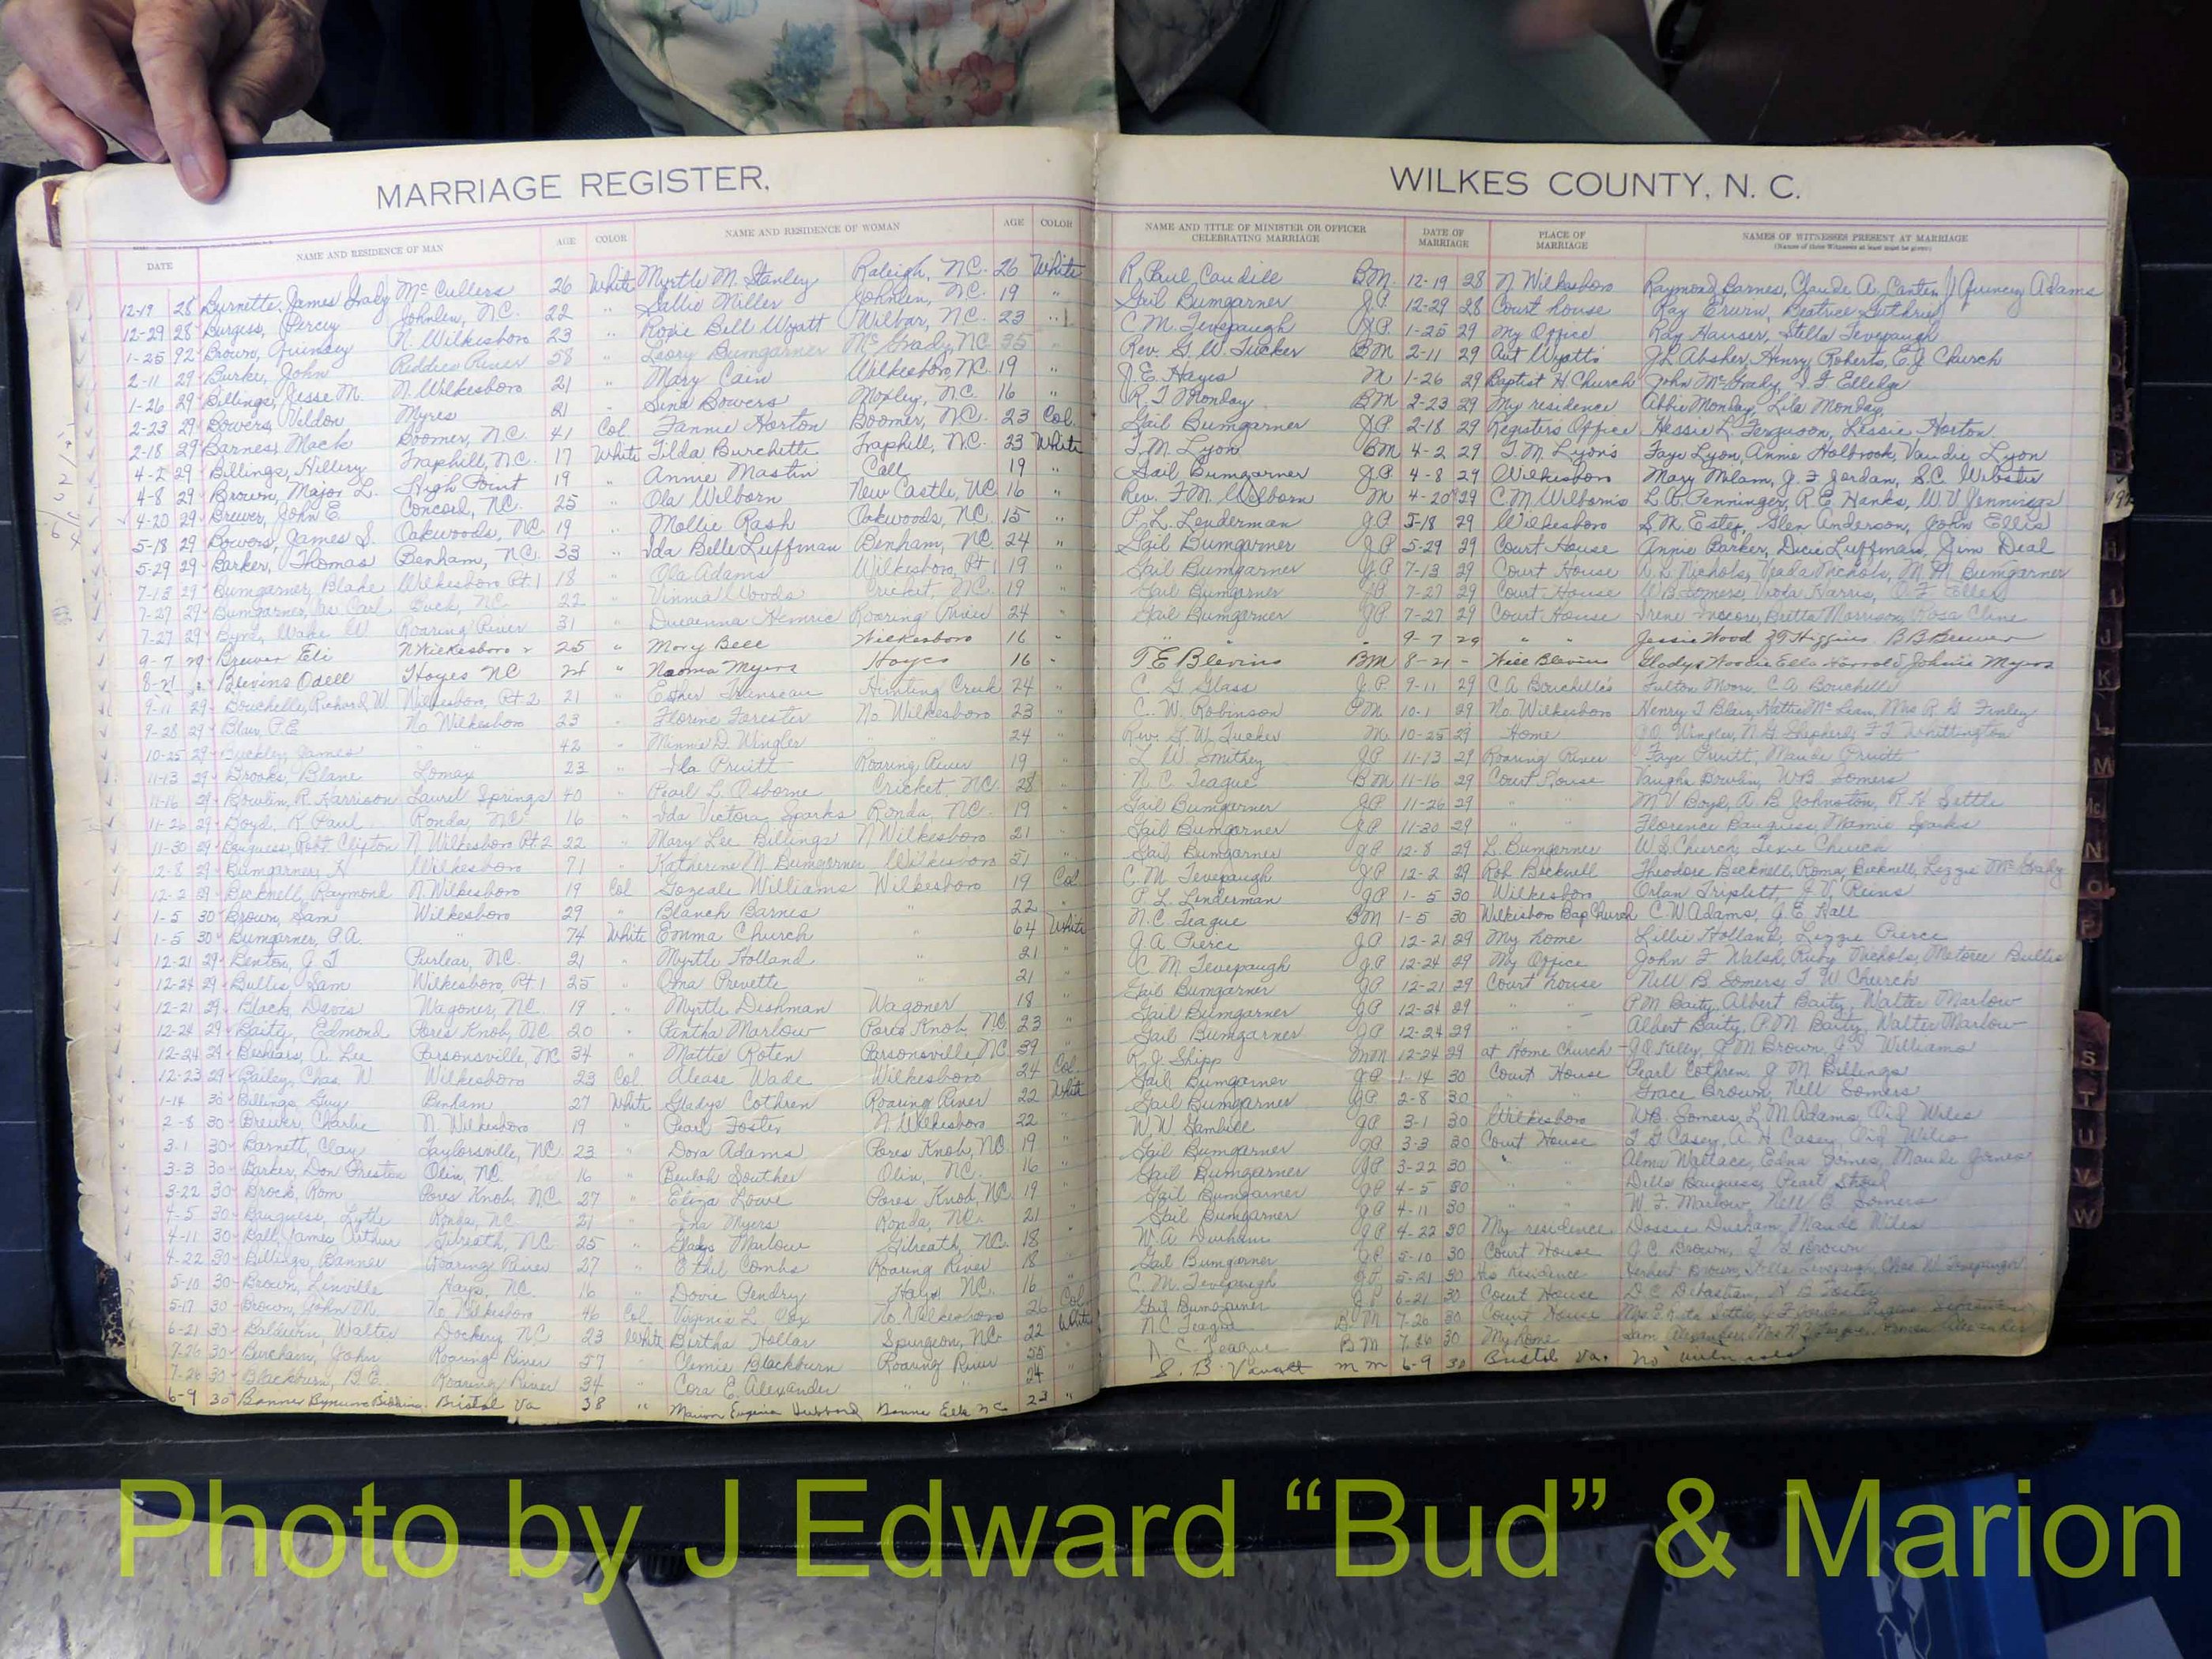 MARRIAGE REGISTER,
WILKES COUNTY, N. C.
DATE NAME AND RESIDENCE OF MAN AGE COLOR NAME AND RESIDENCE OF WOMAN AGE COLOR
NAME AND TITLE OF MINISTER OR OFFICER CELEBRATING MARRIAGE DATE OF MARRIAGE PLACE OF MARRIAGE NAMES OF WITNESSES PRESENT AT MARRIAGE
(Names of three Witnesses at least must be given)
12-19 28 Burnette, James Grady Mc Cullers 26 White Myrtle M. Stanley Raleigh, N.C. 26 White
12-29 28 Burgess, Percy 22 " Sallie Miller 19 "
1-25 92 Brown, Quinsey N. Wilkesboro 23 " Rosie Bell Wyatt Wilbar, N.C. 23 "
2-11 29 Burke, John Reddies River 58 " Leory Bumgarner Mc Grady, NC 35
1-26 29 Billings, Jesse M. N. Wilkesboro 21 " Mary Cain Wilkesboro, N.C. 19 "
2-23 29 Bowers, Veldon Myres 21 Sena Bowers Moxley, N.C. 16 "
2-18 29 Barnes, Mack Boomer, N.C. 41 Col. Fannie Horton Boomer, N.C. 23 Col.
4-2 29 Billings, Hillery Traphill, N.C. 17 White Tilda Burchette Traphill, N.C. 33 White
4-8 29 Brown, Major L. High Point 19 " Annie Mastin Call 19 "
4-20 29 Brewer, John E. Concord, N.C. 25 " Ola Wilborn New Castle, NC 16 "
5-18 29 Bowers, James S. Oakwoods, N.C. 19 " Mollie Rash Oakwoods, N.C. 15 "
5-29 29 Barker, Thomas Benham, N.C. 33 " Ida Belle Luffman Benham, N.C. 24 "
7-13 29 Bumgarner, Blake Wilkesboro Rt. 1 18 " Ola Adams Wilkesboro, Rt 1 19 "
7-27 29 Bumgarner, Carl NC. 22 " Vinnia Woods Cricket, N.C. 19 "
7-27 29 Byrd, Wake W Roaring River 31 " Hemric Roaring River 24 "
9-7 29 Brewer Eli N Wilkesboro 25 " Mary Bell Wilkesboro 16 "
8-21 Blevins Odell Hayes NC 24 " Naoma Myers Hayes 16 "
9-11 29 Bouchelle, Richard W. Wilkesboro, Rt. 2 21 " Esther Transeau Hunting Creek 24 "
9-28 29 Blair, P.E. No Wilkesboro 23 Florine Forester No. Wilkesboro 23 "
10-25 29 Buckley, James " " 42 " Minnie D. Wingler " " 24 "
11-13 29 Brooks, Blane Lomax 23 " Ila Pruitt Roaring River 19 "
11-16 29 Bowlin, R. Harrison Laurel Springs 40 " Pearl L. Osborne Cricket, NC 28 "
11-26 29 Boyd, R Paul Ronda, NC 16 " Ida Victoria Sparks Ronda, N.C. 19 "
11-30 29 Bauguess, Robt. Clifton N Wilkesboro Rt. 2 22 " Mary Lee Billings N Wilkesboro 21 "
12-8 29 Bumgarner, H Wilkesboro 71 " Katherine M. Bumgarner Wilkesboro "
12-2 29 Bicknell, Raymond N. Wilkesboro 19 Col Williams Wilkesboro 19 Col
1-5 30 Brown, Sam Wilkesboro 29 " Blanch Barnes " 22 "
1-5 30 Bumgarner, P.A. " 74 White Emma Church " 64 White
12-21 29 Benton, J T Purlear, N.C. 21 " Myrtle Holland " 21 "
12-24 29 Bullis, Sam Wilkesboro, Rt. 1 25 " Oma Prevette 21 "
12-21 29 Black, Davis Wagoner, NC. 19 " Myrtle Dishman Wagoner 18 "
12-24 29 Baity, Edmond Pores Knob, NC 20 " Pantha Marlow Pores Knob, NC 23 "
12-24 29 Beshears, A. Lee Parsonsville, NC 34 " Mattie Roten Parsonsville, NC 39 "
12-23 29 Bailey, Chas. W. Wilkesboro 23 Col. Alease Wade Wilkesboro 24 Col.
1-14 30 Billings, Guy Benham 27 White Gladys Cothren Roaring River 22 White
2-8 30 Brewer, Charlie N. Wilkesboro 19 " Pearl Foster N. Wilkesboro 22 "
3-1 30 Barnett, Clay Taylorsville, N.C. 23 " Dora Adams Pores Knob, NC 19 "
3-3 30 Barker, Don Preston Olin, N.C. 16 " Beulah Souther Olin, N.C. 16 "
3-22 30 Brock, Rom Pores Knob, N.C. 27 " Eliza Lowe Pores Knob, N.C. 19 "
4-5 30 Bauguess, Lytle Ronda, N.C. 21 " Ina Myers Ronda, N.C. 21 "
4-11 30 Ball, James Arthur Gilreath, N.C. 25 " Gladys Marlow Gilreath, N.C. 18 "
4-22 30 Billings, Banner Roaring River 27 " Ethel Combs Roaring River 18 "
5-10 30 Brown, Linville Hays, N.C. 16 " Dovie Pendry Hays, N.C. 16 "
5-17 30 Brown, John M. No. Wilkesboro 46 Col. Virginia L. Cox No Wilkesboro 26 Col.
6-21 30 Baldwin, Walter Dockery, N.C. 23 White Bertha Hollar Spurgeon, N.C. 22 White
7-26 30 Burcham, John Roaring River 57 " Clemie Blackburn Roaring River 55 "
7-26 30 Blackburn, B.C. Roaring River 34 " Cora E. Alexander " " 24 "
6-9 30 Banner Bynum Bristol Va 38 " Marion Eugenia Hubbard Banner Elk NC 23 "
R. Paul Caudill B.M. 12-19 28 N Wilkesboro Raymond Barnes, Claude A. Canter, J Quincy Adams
Gail Bumgarner J.P. 12-29 28 Court house Ray Erwin, Beatrice Guthrie
C. M. Tevepaugh J.P. 1-25 29 My Office Ray Hauser, Stella Tevepaugh
Rev. G. W. Tucker B.M 2-11 29 Wyatts J.L. Absher, Henry Roberts, E.J. Church
J. E. Hayes M 1-26 29 Baptist H Church John McGrady, Elledge
R. T Monday BM 2-23 29 My residence Abbie Monday, Lila Monday,
Gail Bumgarner J.P. 2-18 29 Registers Office Hessie L. Ferguson, Lessie Horton
T. M. Lyon BM 4-2 29 T. M. Lyon's Faye Lyon, Annie Holbrook, Vaudie Lyon
Gail Bumgarner J.P. 4-8 29 Wilkesboro Mary Milam, J. F. Jordan, S.C. Webster
Rev. F.M. Wilborn M 4-20 29 C.M. Wilborn's L. A. Penninger, R.E. Hanks, W. V Jennings
P. L. Lenderman J.P. 5-18 29 Wilkesboro S.M. Estep, Glen Anderson, John Ellis
Gail Bumgarner J.P. 5-29 29 Court House Annie Barker, Dicie Luffman, Jim Deal
Gail Bumgarner J.P. 7-13 29 Court House Nichols, Veada Nichols, M. M Bumgarner
Gail Bumgarner J.P. 7-27 29 Court House W B Somers, Harris,
Gail Bumgarner J.P. 7-27 29 Court House Irene Moore, Britta Morrison, Rosa Cline
" " 9-7 29 " " Jessie Wood Higgins B B Brewer
T E Blevins BM 8-21 - Will Blevins Gladys Woodie Ella Harrold Johnie Myers
C. G Glass J.P. 9-11 29 C A Bouchelle's Fulton Moore, C. A Bouchelle
C. W. Robinson P.M 10-1 29 No. Wilkesboro Henry T Blair, Hattie McLean, Mrs R. G Finley
Rev. G. W. Tucker M. 10-25 29 Home Wingler, N. G. Shepherd, F. F. Whittington
L. W Smithey J.P 11-13 29 Roaring River Faye Pruitt, Maude Pruitt
N. C. Teague B M 11-16 29 Court House Vaughn Bowlin, W.B Somers
Gail Bumgarner J.P. 11-26 29 " " M V Boyd, A. B Johnston, R H Settle
Gail Bumgarner J.P. 11-30 29 " " Florence Bauguess, Mamie Sparks
Gail Bumgarner J.P. 12-8 29 L. Bumgarner W. S Church, Texie Church
C. M. Tevepaugh J.P 12-2 29 Rob Bicknell Theodore Bicknell, Roma Bicknell, Lizzie McGrady
P. L. Lenderman J.P 1-5 30 Wilkesboro Orlan Triplett, Reins
N. C. Teague BM 1-5 30 Wilkesboro Bap Church C. W Adams, J. E. Hall
J. A Pierce J.P 12-21 29 My home Lillie Holland, Lizzie Pierce
C. M Tevepaugh J.P 12-24 29 My Office John F Walsh, Ruby Nichols, Bullis
Gail Bumgarner J.P 12-21 29 Court house Nell B. Somers, T. W Church
Gail Bumgarner J.P 12-24 29 " " P.M Baity, Albert Baity, Walter Marlow
Gail Bumgarner J.P 12-24 29 " " Albert Baity, P. M Baity, Walter Marlow
R. J. Shipp M M 12-24 29 at Home Church Kelly, P M Brown, Williams
Gail Bumgarner J.P 1-14 30 Court House Pearl Cothren, J M Billings
Gail Bumgarner J.P 2-8 30 Grace Brown, Nell Somers
W. W. Gambill J.P 3-1 30 Wilkesboro W.B. Somers, L. M Adams, Wiles
Gail Bumgarner J.P 3-3 30 Court House T. G Casey, A. H. Casey, Wiles
Gail Bumgarner J.P 3-22 30 " " Alma Wallace, Edna Jones, Maude Jones
Gail Bumgarner J.P 4-5 30 " " Della Bauguess, Pearl
Gail Bumgarner J.P 4-11 30 " " W. F. Marlow, Nell B. Somers
W. A. Durham J.P 4-22 30 My residence Dossie Durham, Maude Wiles
Gail Bumgarner J.P 5-10 30 Court House J. C Brown, Brown
C. M. Tevepaugh J.P. 5-21 30 His Residence Herbert Brown, Stella Tevepaugh, Chas W. Tevepaugh
Gail Bumgarner J.P 6-21 30 Court House D.C. Sebastian, Foster
N. C. Teague B. M 7-26 30 Court House
N. C. Teague B M 7-26 30 My home Sam Alexander, Alexander
S. B. M M 6-9 30 Bristol Va. No
Photo by J Edward “Bud” & Marion